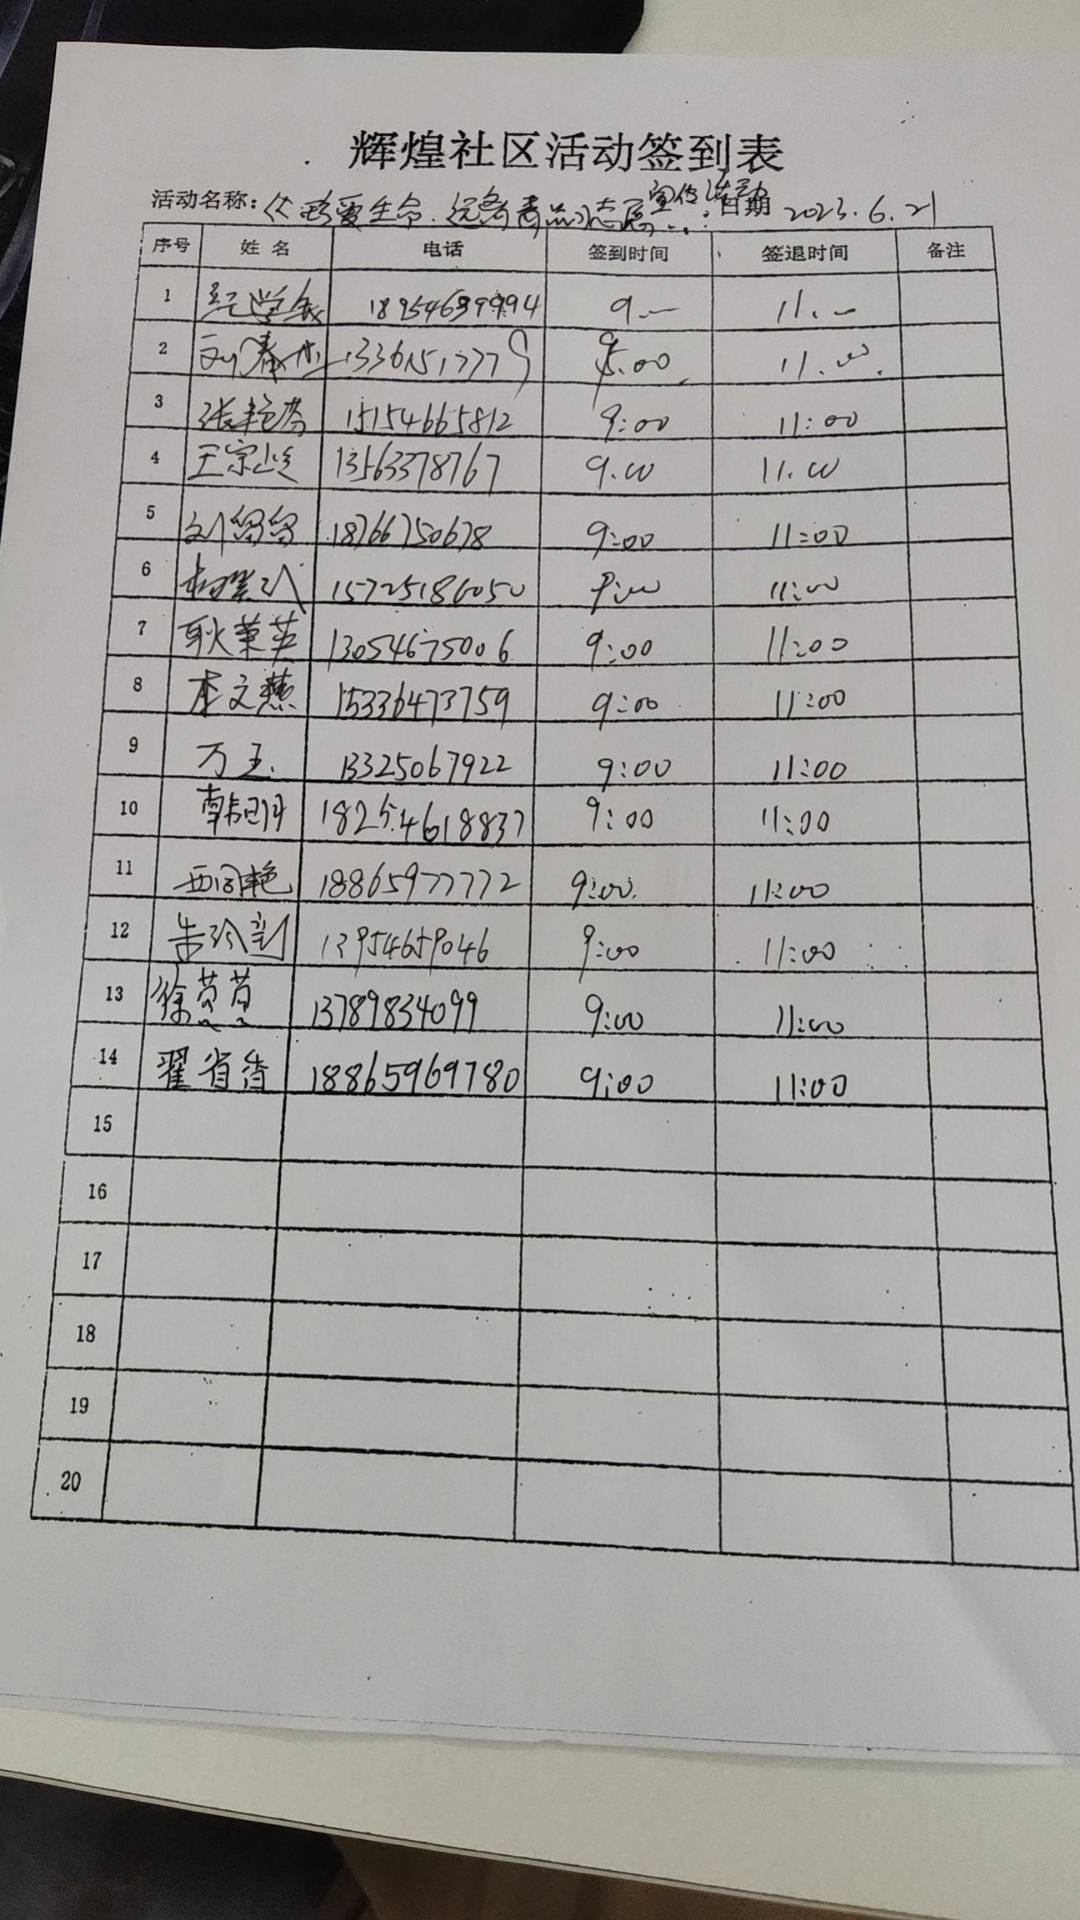 辉煌社区活动签到表
活动名称:《珍爱生命.远离毒品》志愿宣传活动 日期 2023.6.21
序号 姓名 电话 签到时间 签退时间 备注
1 18954639994 9.— 11.—
2 刘春 9.00 11.00
3 张艳芳 15154665812 9:00 11:00
4 王宗 13563378767 9.00 11.00
5 刘留留 18766750678 9:00 11:00
6 15725186050 9:00 11:00
7 耿菜英 13054675006 9:00 11:00
8 李文燕 15336473759 9:00 11:00
9 万玉. 13325067922 9:00 11:00
10 韩 18254618837 9:00 11:00
11 西闫艳 18865977772 9:00 11:00
12 朱玲 13954659046 9:00 11:00
13 徐 13789834099 9:00 11:00
14 翟省香 18865969780 9:00 11:00
15
16
17
18
19
20